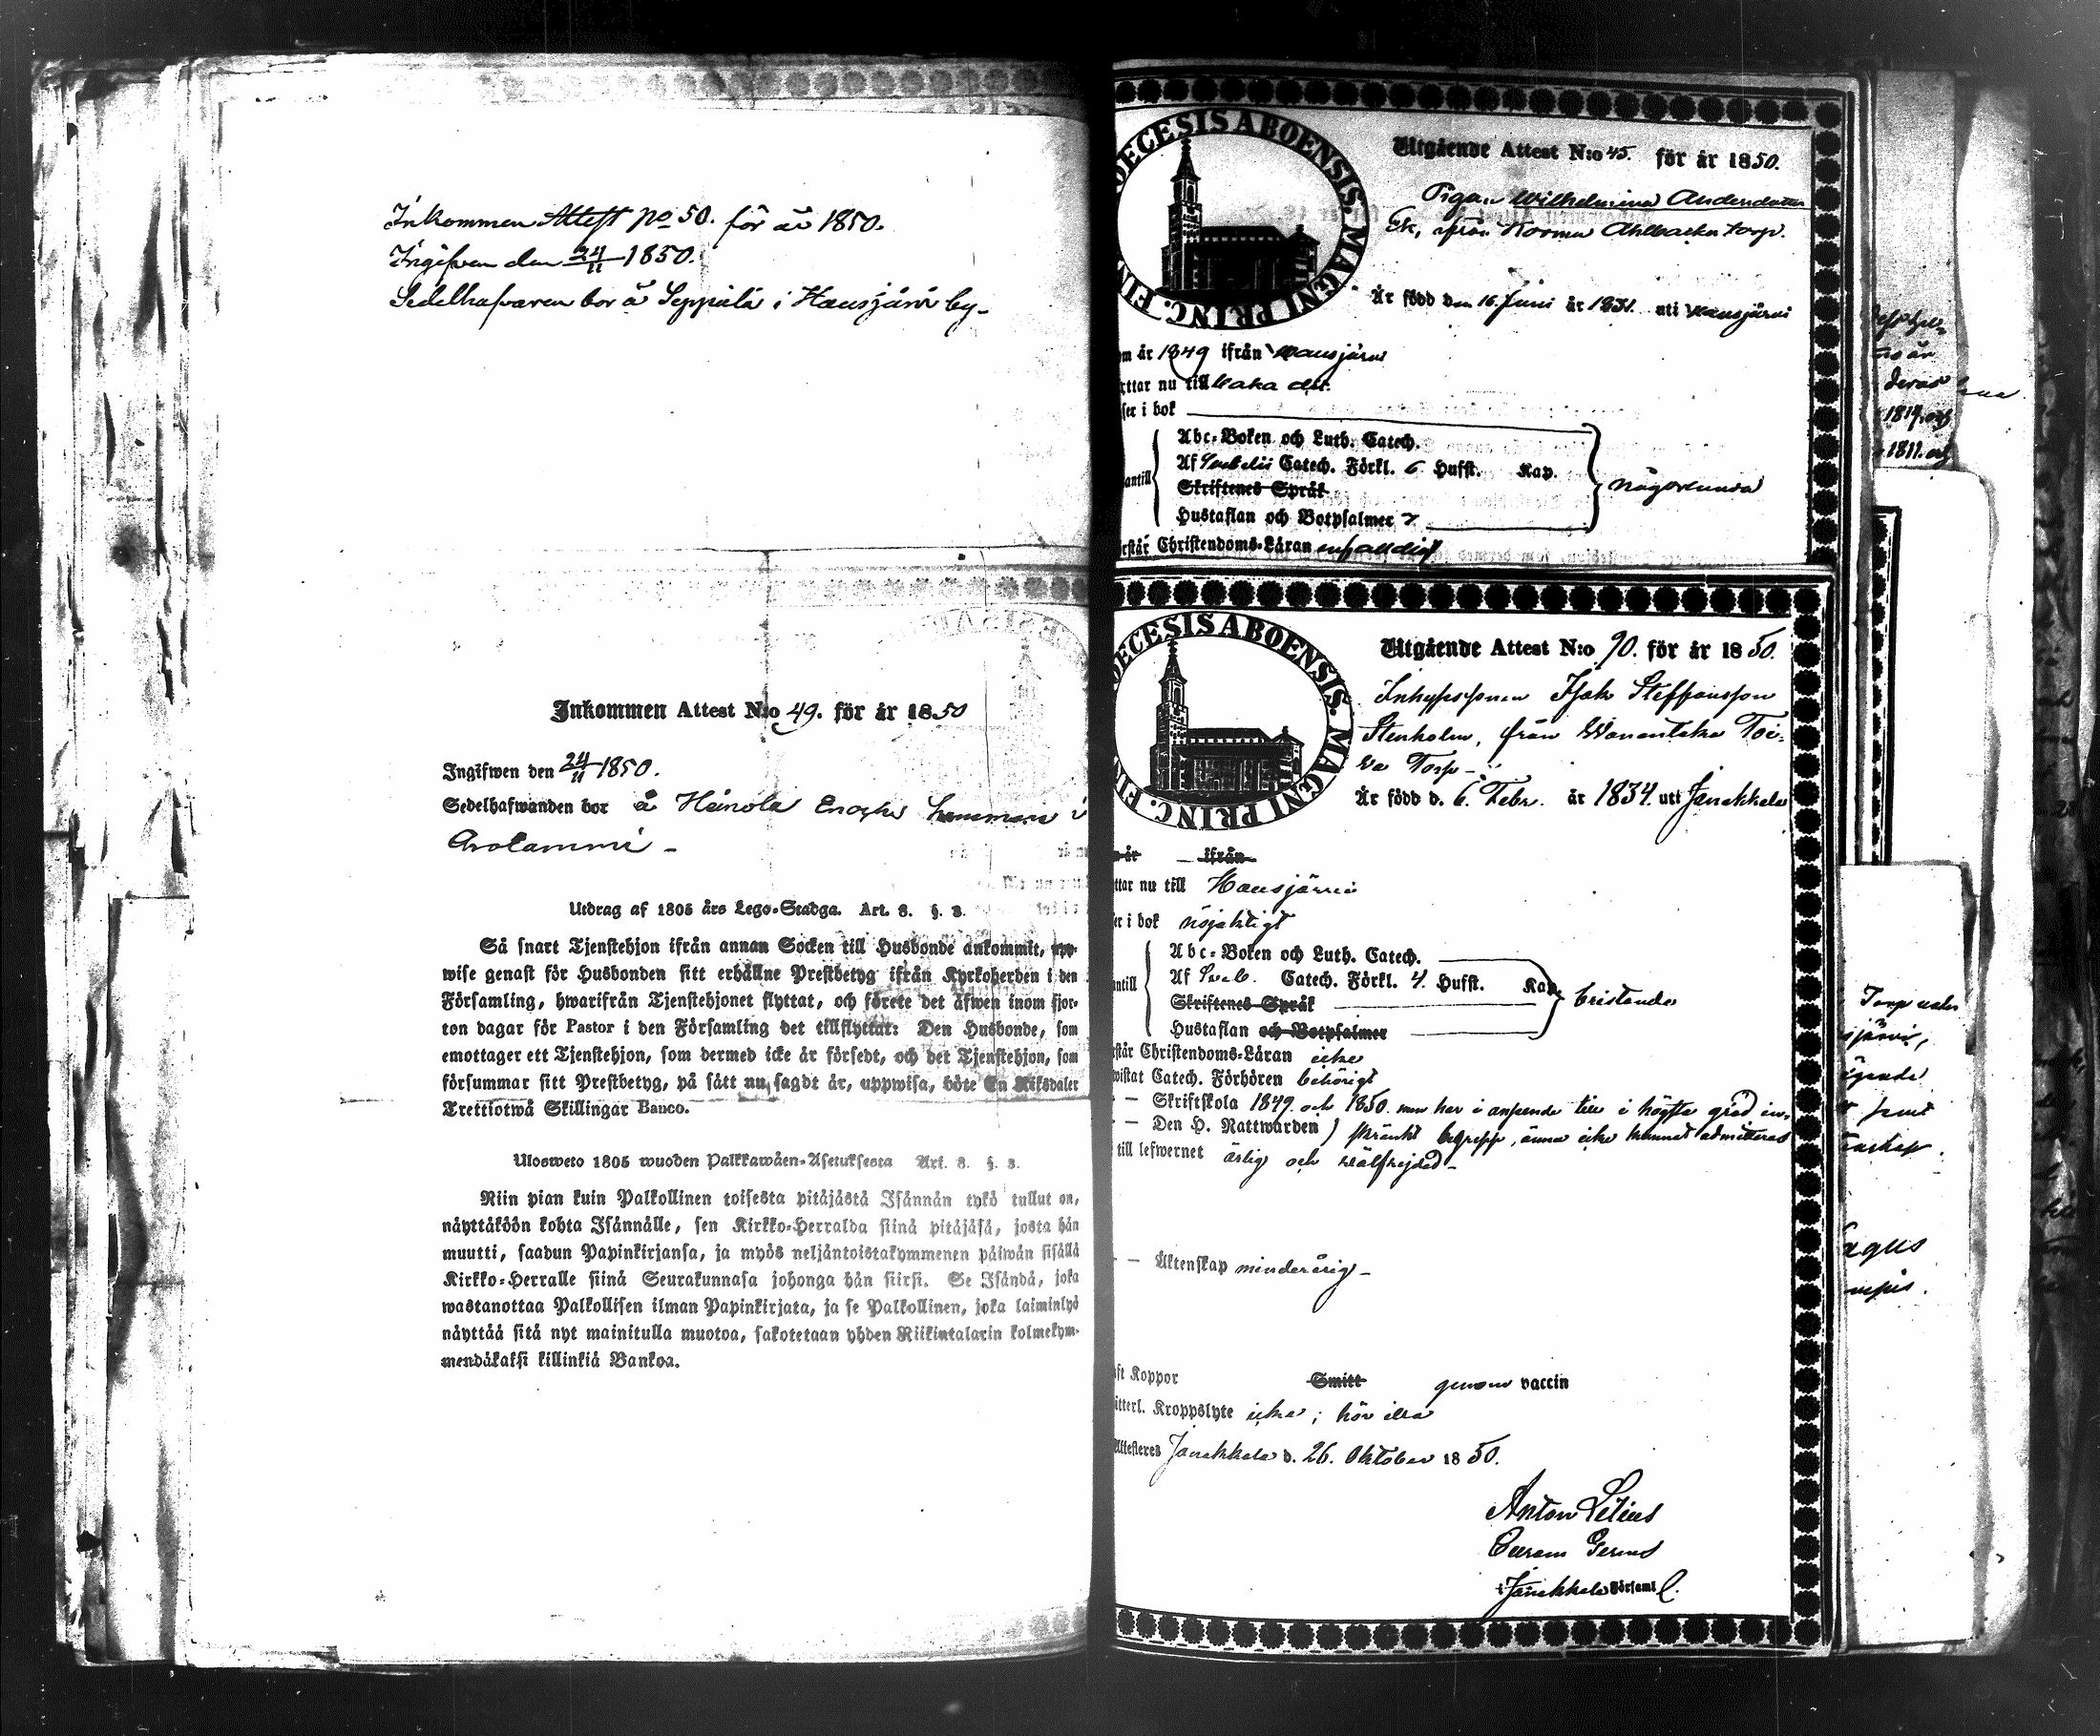 Inkommen Attest No 50. för år 1850.
Ingifven den 24/11 1850.
Sedelhafvaren bor å Seppälä i Hausjärvi by_
Inkommen Attest N:o 49. för år 1850
Ingifwen den 24/11 1850.
Sedelhafwanden bor å Heinola Enoks hemman i
Arolammi _
Utdrag af 1805 års Lego-Stadga. Art. 8. §. 3.
Så snart Tjenstehjon ifrån annan Socken till Husbonde ankommit,
wise genast för Husbonden sitt erhållne Prestbetyg ifrån Kyrkoherden i den
Församling, hwarifrån Tjenstehjonet flyttat, och förete det äfwen inom fjor-
ton dagar för Pastor i den Församling det tillflyttat: Den Husbonde, som
emottager ett Tjenstehjon, som dermed icke är försedt, och det Tjenstehjon, som
försummar sitt Prestbetyg, på sätt nu sagdt är, uppwisa, böte En Riksdaler
Trettiotwå Skillingar Banco.
Ulosweto 1805 wuoden Palkkawäen-Asetuksesta Art. 8. §. 3.
Niin pian kuin Palkollinen toisesta pitäjästä Isännän tykö tullut on,
näyttäköön kohta Isännälle, sen Kirkko-Herralda siinä pitäjäsä, josta hän
muutti, saadun Papinkirjansa, ja myös neljäntoistakymmenen päiwän sisällä
Kirkko-Herralle siinä Seurakunnasa johonga hän siirsi. Se Isändä, joka
wastanottaa Palkollisen ilman Papinkirjata, ja se Palkollinen, joka laiminlyö
näyttää sitä nyt mainitulla muotoa, sakotetaan yhden Riikintalarin kolmekym-
mendäkaksi killinkiä Bankoa.
DECESIS ABOENSIS. MAGNI PRINC. FIN
Utgående Attest N:o 45. för år 1850.
Pigan Wilhelmina Andersdotter
Ek, ifrån Ahlbacka torp.
År född den 16. Juni år 1831. uti Hausjärvi
om år 1849 ifrån Hausjärvi
ttar nu till baka dit.
ser i bok
antill
Abc-Boken och Luth. Catech.
Af Svebelii Catech. Förkl. 6 Hufst. Kap.
Skriftenes Språk
Hustaflan och Botpsalmer 7
någorlunda
rstår Christendoms-Läran enfaldigt
DECESIS ABOENSIS. MAGNI PRINC. FIN
Utgående Attest N:o 90. för år 1850.
Inhysessonen Isak Steffansson
Stenholm, från Wanantaka Toi-
va Torp _
År född d. 6. Febr. år 1834. uti Janakkala
m år _ ifrån
ttar nu till Hausjärvi
er i bok nöjaktigt
antill
Abc-Boken och Luth. Catech.
Af Sveb. Catech. Förkl. 4. Hufst. Kap.
Skriftenes Språk
Hustaflan och Botpsalmer
bristande
rstår Christendoms-Läran icke
wistat Catech. Förhören behörigt
— Skriftskola 1849. och 1850. men har i anseende till i högsta grad in-
— Den H. Nattwarden skränkt begrepp, ännu icke kunnat admitteras
till lefwernet ärlig och välfrejdad_
— Äktenskap minderårig_
ft Koppor Smitt genom vaccin
itterl. Kroppslyte icke; hör illa
Attesteres Janakkala d. 26. Oktober 1850.
Anton Lilius
Janakkala Församl.
1819. och
1811. och
Torp